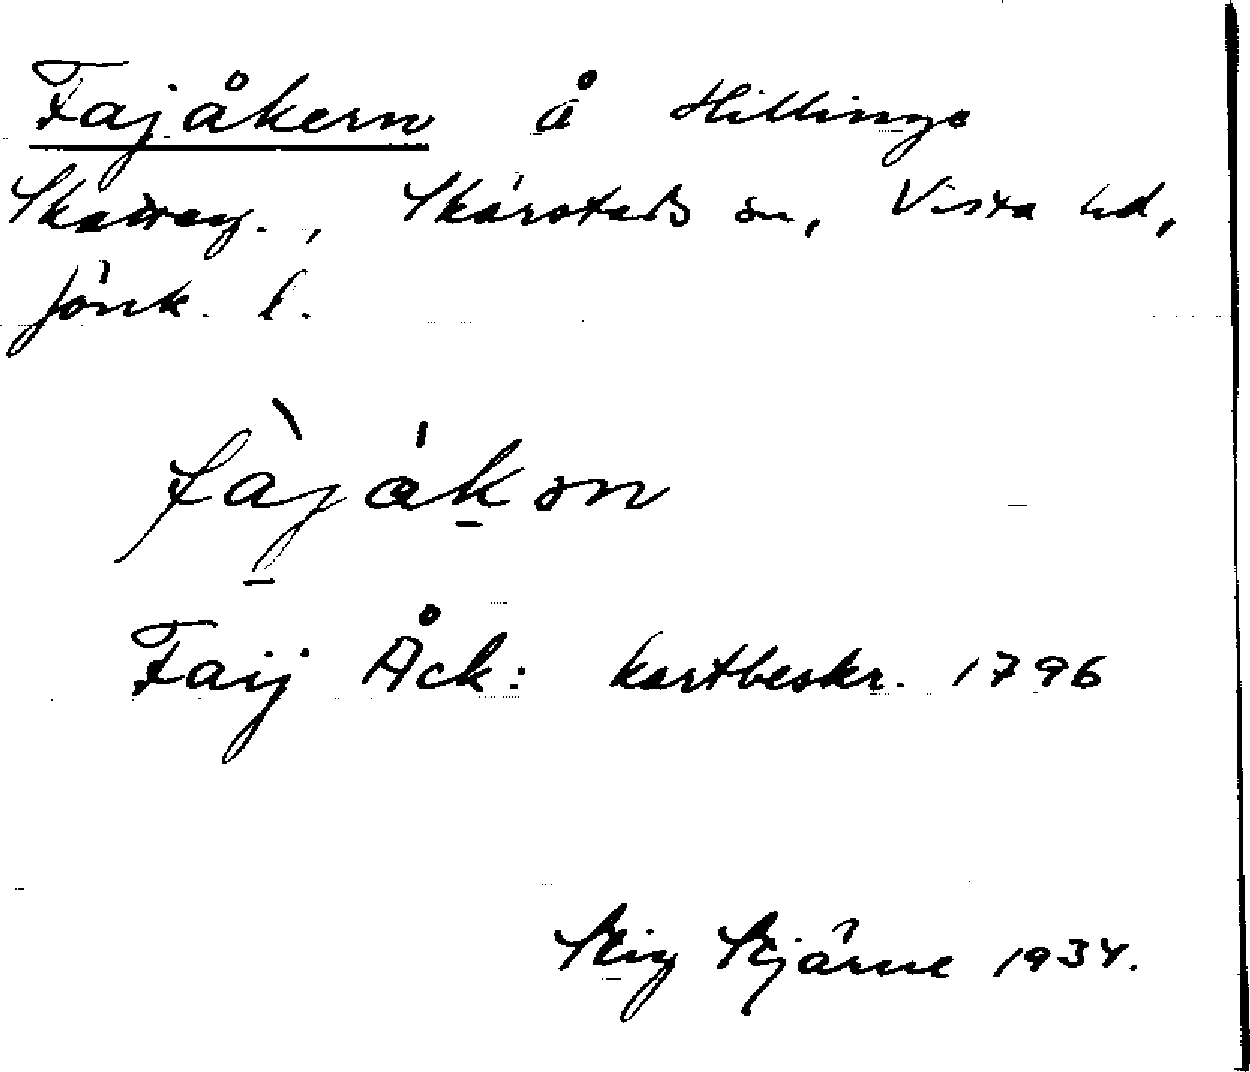 Fajåkern å Hillinge
Skatteg., Skärstads sn, Vista hd,
Jönk. l.
fàjåkɔn
Faij Åck: kartbeskr. 1796
Stig Stjärne 1934.